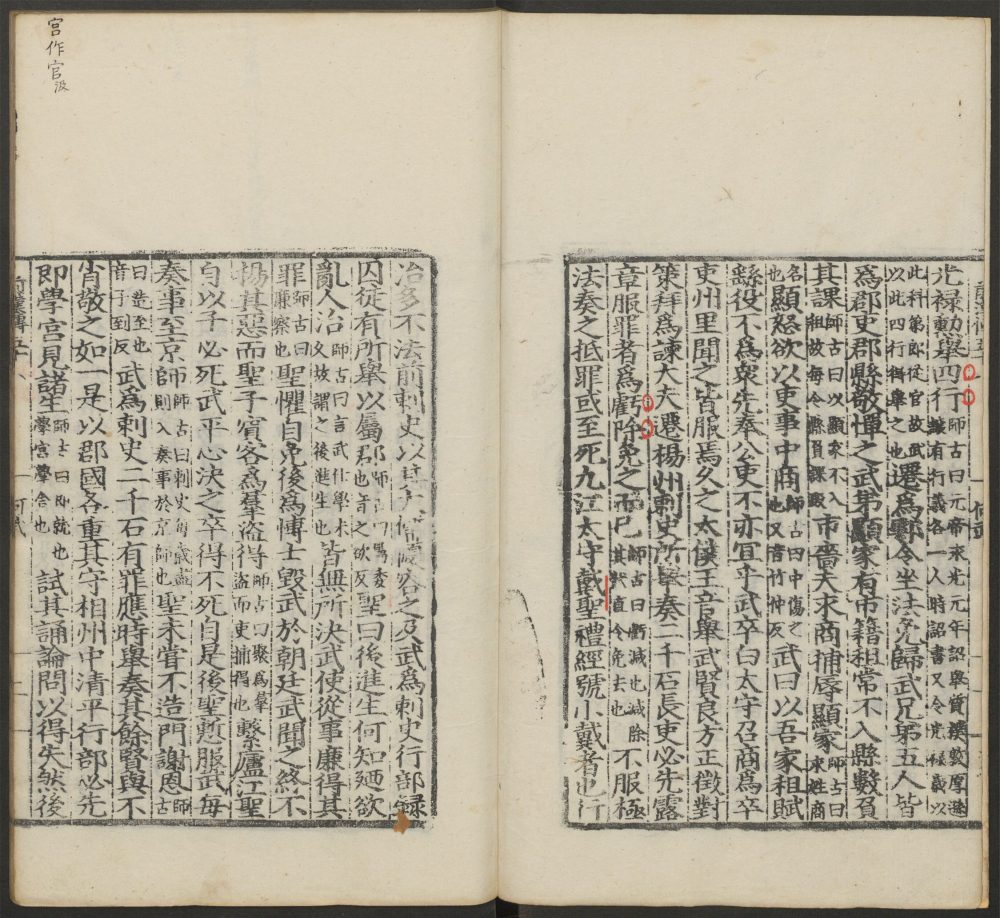 光祿勳舉四行師古曰元帝永光元年詔舉質樸敦厚遜讓有行義各一人時詔書又令光祿歲以
此科第郎從官故武以此四行得舉之也遷爲鄠令坐法免歸武兄弟五人皆
爲郡吏郡縣敬憚之武弟顯家有市籍租常不入縣數負
其課師古曰以顯家不入租故每令縣負課殿市嗇夫求商捕辱顯家師古曰求姓商
名也顯怒欲以吏事中商師古曰中傷之也又音竹仲反武曰以吾家租賦
繇役不爲衆先奉公吏不亦宜乎武卒白太守召商爲卒
吏州里聞之皆服焉久之太僕王音舉武賢良方正徵對
策拜爲諫大夫遷楊州刺史所舉奏二千石長吏必先露
章服罪者爲虧除免之而已師古曰虧減也減除其狀直令免去也不服極
法奏之抵罪或至死九江太守戴聖禮經號小戴者也行
治多不法前刺史以其大儒優容之及武爲刺史行部錄
囚徒有所舉以屬郡師古曰屬委也音之欲反聖曰後進生何知迺欲
亂人治師古曰言武仕學未久故謂之後進生也皆無所決武使從事廉得其
罪師古曰廉察也聖懼自免後爲博士毀武於朝廷武聞之終不
揚其惡而聖子賓客爲羣盜得師古曰聚爲羣盜而吏捕得也繫廬江聖
自以子必死武平心決之卒得不死自是後聖慙服武每
奏事至京師師古曰刺史每歲盡則入奏事於京師也聖未嘗不造門謝恩師古
曰造至也音千到反武爲刺史二千石有罪應時舉奏其餘賢與不
肖敬之如一是以郡國各重其守相州中清平行部必先
即學宮見諸生師古曰即就也學宮學舍也試其誦論問以得失然後
宮作官汲